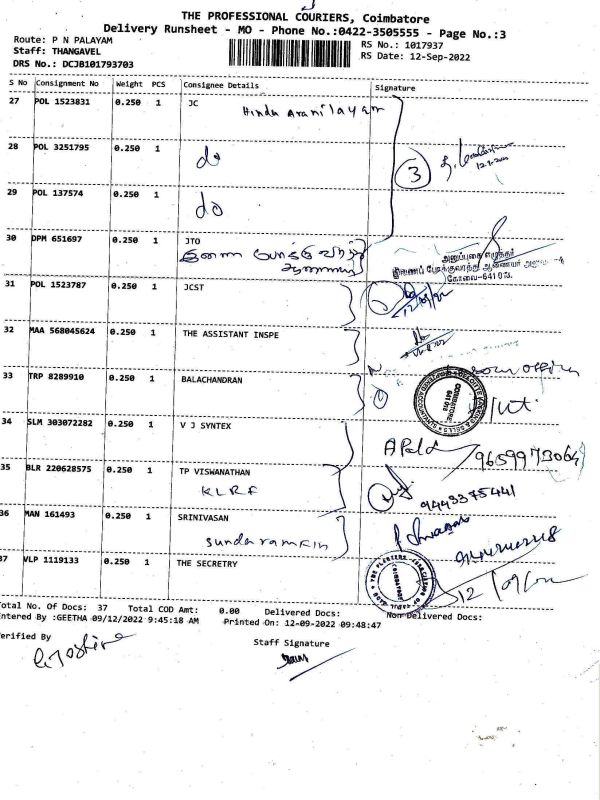 THE PROFESSIONAL COURIERS, Coimbatore
Delivery Runsheet - MO - Phone No.:0422-3505555 - Page No.:3
Route: P N PALAYAM
Staff: THANGAVEL
DRS No.: DCJB101793703
RS No.: 1017937
RS Date: 12-Sep-2022
S No Consignment No Weight PCS Consignee Details Signature
27 POL 1523831 0.250 1 JC
Hindu
28 POL 3251795 0.250 1
do 3
29 POL 137574 0.250 1
do
30 DPM 651697 0.250 1 JTO
கோவை-641018.
31 POL 1523787 0.250 1 JCST
32 MAA 568045624 0.250 1 THE ASSISTANT INSPE
33 TRP 8289910 0.250 1 BALACHANDRAN
34 SLM 303072282 0.250 1 V J SYNTEX
9659973064
35 BLR 220628575 0.250 1 TP VISWANATHAN
KLRF 9443375441
36 MAN 161493 0.250 1 SRINIVASAN
Sundaram Fin
37 VLP 1119133 0.250 1 THE SECRETRY
Total No. Of Docs: 37 Total COD Amt: 0.00 Delivered Docs: Non Delivered Docs:
Entered By :GEETHA 09/12/2022 9:45:18 AM Printed On: 12-09-2022 09:48:47
Verified By Staff Signature